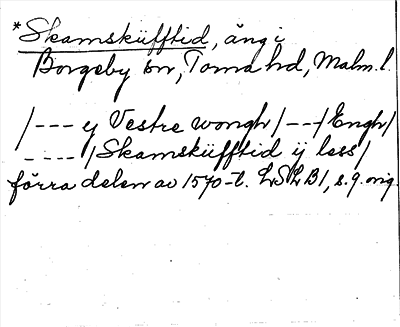 *Skamskiifftid, äng i
Borgeby sn, Torna hd, Malm. l.
/--- y Vestre wongh/---/Engh/
----/Skamskiifftid ij less/
förra delen av 1570-t. LSLB1, s. 9. orig.